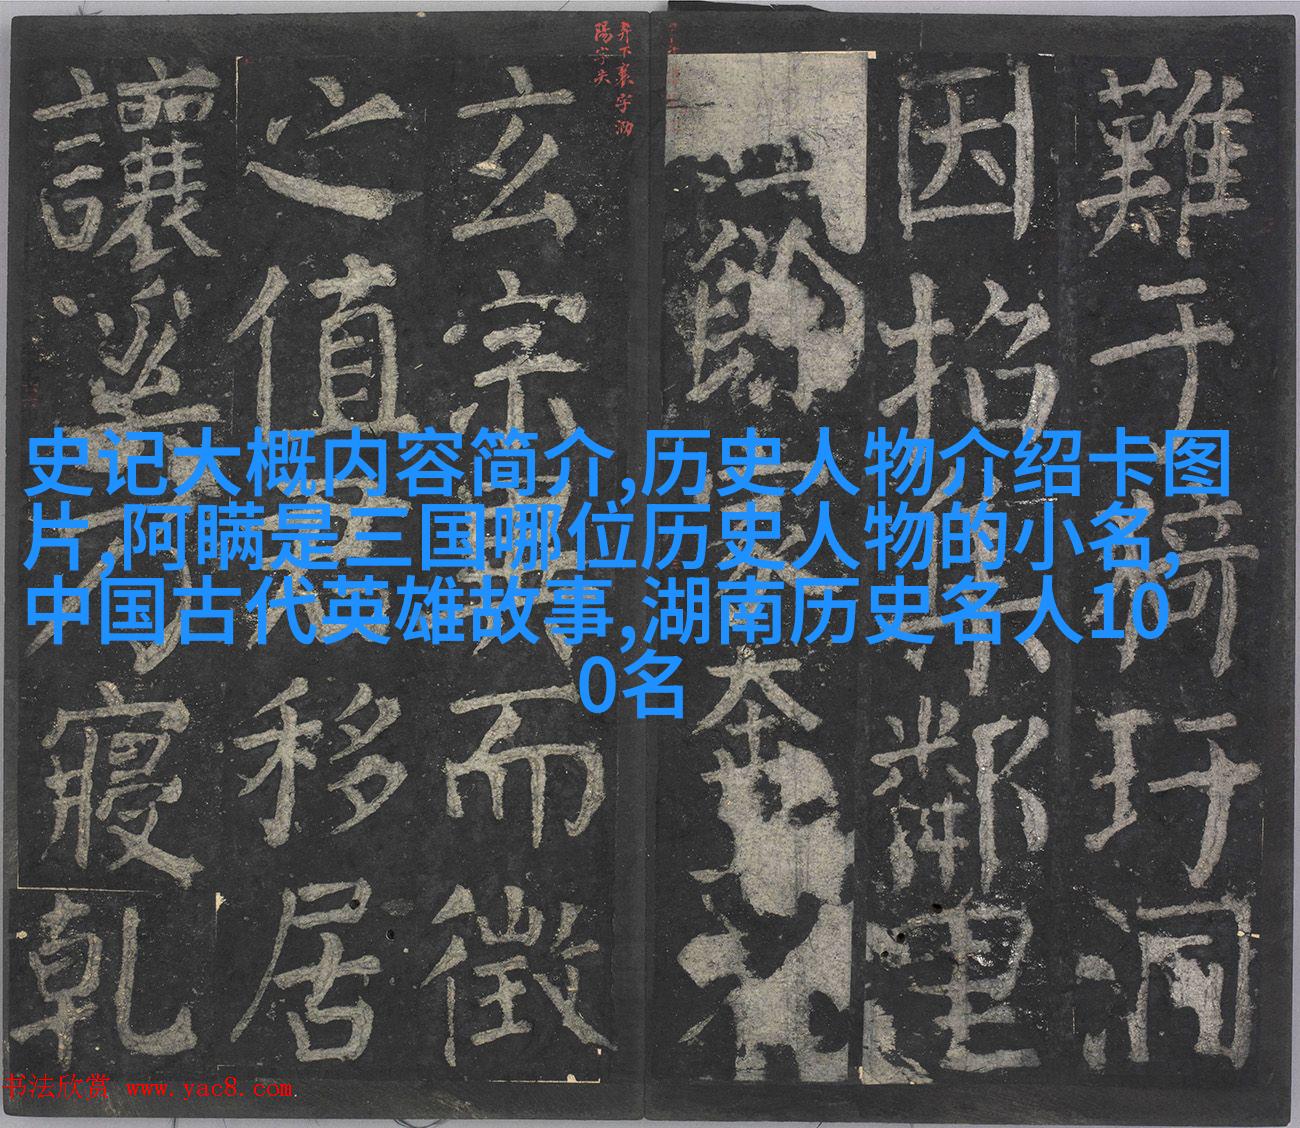 難于猗玗洞
因招集鄰里
餘家奔
奔下襄字泐
陽字失
玄宗異而徵
之值君移居
讓溪乃寢乾
史记大概内容简介,历史人物介绍卡图
片,阿瞒是三国哪位历史人物的小名,
中国古代英雄故事,湖南历史名人10
0名
书法欣赏 www.yac8.com